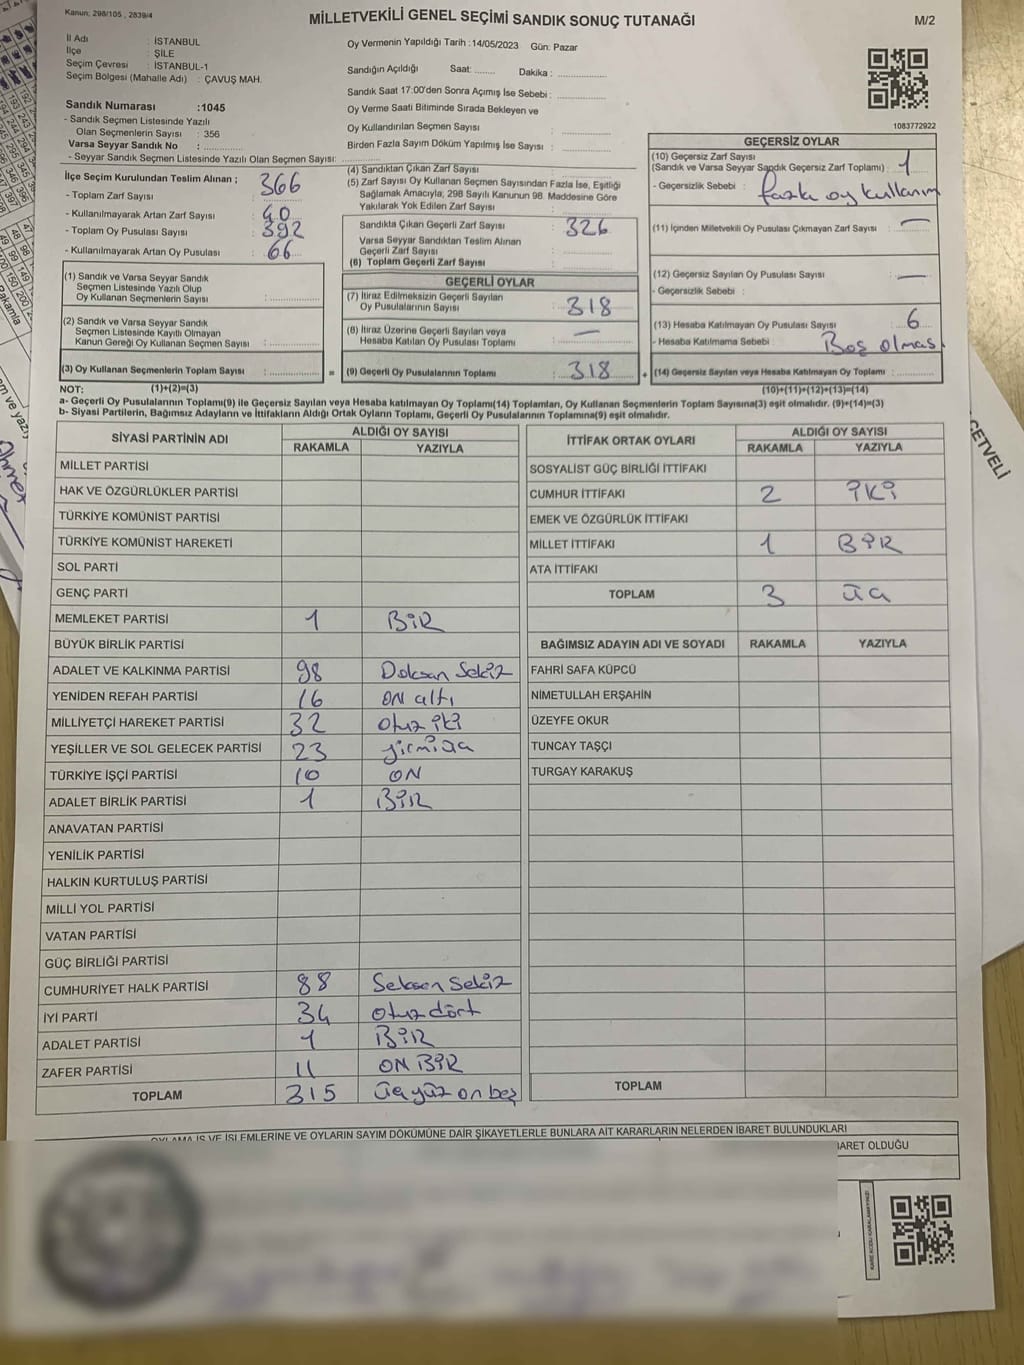 Kanun: 298/105 , 2839/4
MİLLETVEKİLİ GENEL SEÇİMİ SANDIK SONUÇ TUTANAĞI
M/2
İl Adı : İSTANBUL
İlçe : ŞİLE
Seçim Çevresi : İSTANBUL-1
Seçim Bölgesi (Mahalle Adı) : ÇAVUŞ MAH.
Sandık Numarası :1045
- Sandık Seçmen Listesinde Yazılı
Olan Seçmenlerin Sayısı : 356
Varsa Seyyar Sandık No :
- Seyyar Sandık Seçmen Listesinde Yazılı Olan Seçmen Sayısı:
Oy Vermenin Yapıldığı Tarih :14/05/2023 Gün: Pazar
Sandığın Açıldığı Saat: Dakika :
Sandık Saat 17:00'den Sonra Açımış İse Sebebi :
Oy Verme Saati Bitiminde Sırada Bekleyen ve
Oy Kullandırılan Seçmen Sayısı :
Birden Fazla Sayım Döküm Yapılmış İse Sayısı :
1083772922
İlçe Seçim Kurulundan Teslim Alınan ;
- Toplam Zarf Sayısı : 366
- Kullanılmayarak Artan Zarf Sayısı : 40
- Toplam Oy Pusulası Sayısı : 392
- Kullanılmayarak Artan Oy Pusulası : 66
(1) Sandık ve Varsa Seyyar Sandık
Seçmen Listesinde Yazılı Olup
Oy Kullanan Seçmenlerin Sayısı :
(2) Sandık ve Varsa Seyyar Sandık
Seçmen Listesinde Kayıtlı Olmayan
Kanun Gereği Oy Kullanan Seçmen Sayısı :
(3) Oy Kullanan Seçmenlerin Toplam Sayısı : =
(4) Sandıktan Çıkan Zarf Sayısı :
(5) Zarf Sayısı Oy Kullanan Seçmen Sayısından Fazla İse, Eşitliği
Sağlamak Amacıyla, 298 Sayılı Kanunun 98. Maddesine Göre
Yakılarak Yok Edilen Zarf Sayısı :
Sandıkta Çıkan Geçerli Zarf Sayısı : 326
Varsa Seyyar Sandıktan Teslim Alınan
Geçerli Zarf Sayısı :
(6) Toplam Geçerli Zarf Sayısı :
GEÇERLİ OYLAR
(7) İtiraz Edilmeksizin Geçerli Sayılan
Oy Pusulalarının Sayısı : 318
(8) İtiraz Üzerine Geçerli Sayılan veya
Hesaba Katılan Oy Pusulası Toplamı : —
(9) Geçerli Oy Pusulalarının Toplamı : 318 +
GEÇERSİZ OYLAR
(10) Geçersiz Zarf Sayısı
(Sandık ve Varsa Seyyar Sandık Geçersiz Zarf Toplamı) : 1
- Geçersizlik Sebebi : fazla oy kullanım
(11) İçinden Milletvekili Oy Pusulası Çıkmayan Zarf Sayısı : —
(12) Geçersiz Sayılan Oy Pusulası Sayısı : —
- Geçersizlik Sebebi :
(13) Hesaba Katılmayan Oy Pusulası Sayısı : 6
- Hesaba Katılmama Sebebi : Boş olması
(14) Geçersiz Sayılan veya Hesaba Katılmayan Oy Toplamı :
NOT: (1)+(2)=(3) (10)+(11)+(12)+(13)=(14)
a- Geçerli Oy Pusulalarının Toplamı(9) ile Geçersiz Sayılan veya Hesaba katılmayan Oy Toplamı(14) Toplamları, Oy Kullanan Seçmenlerin Toplam Sayısına(3) eşit olmalıdır. (9)+(14)=(3)
b- Siyasi Partilerin, Bağımsız Adayların ve İttifakların Aldığı Ortak Oyların Toplamı, Geçerli Oy Pusulalarının Toplamına(9) eşit olmalıdır.
SİYASİ PARTİNİN ADI ALDIĞI OY SAYISI
RAKAMLA YAZIYLA
MİLLET PARTİSİ
HAK VE ÖZGÜRLÜKLER PARTİSİ
TÜRKİYE KOMÜNİST PARTİSİ
TÜRKİYE KOMÜNİST HAREKETİ
SOL PARTİ
GENÇ PARTİ
MEMLEKET PARTİSİ 1 BİR
BÜYÜK BİRLİK PARTİSİ
ADALET VE KALKINMA PARTİSİ 98 Doksan Sekiz
YENİDEN REFAH PARTİSİ 16 ON altı
MİLLİYETÇİ HAREKET PARTİSİ 32 otuz iki
YEŞİLLER VE SOL GELECEK PARTİSİ 23 yirmi üç
TÜRKİYE İŞÇİ PARTİSİ 10 ON
ADALET BİRLİK PARTİSİ 1 BİR
ANAVATAN PARTİSİ
YENİLİK PARTİSİ
HALKIN KURTULUŞ PARTİSİ
MİLLİ YOL PARTİSİ
VATAN PARTİSİ
GÜÇ BİRLİĞİ PARTİSİ
CUMHURİYET HALK PARTİSİ 88 Seksen Sekiz
İYİ PARTİ 34 otuz dört
ADALET PARTİSİ 1 BİR
ZAFER PARTİSİ 11 ON BİR
TOPLAM 315 üç yüz on beş
İTTİFAK ORTAK OYLARI ALDIĞI OY SAYISI
RAKAMLA YAZIYLA
SOSYALİST GÜÇ BİRLİĞİ İTTİFAKI
CUMHUR İTTİFAKI 2 İKİ
EMEK VE ÖZGÜRLÜK İTTİFAKI
MİLLET İTTİFAKI 1 BİR
ATA İTTİFAKI
TOPLAM 3 üç
BAĞIMSIZ ADAYIN ADI VE SOYADI RAKAMLA YAZIYLA
FAHRİ SAFA KÜPCÜ
NİMETULLAH ERŞAHİN
ÜZEYFE OKUR
TUNCAY TAŞÇI
TURGAY KARAKUŞ
TOPLAM
OYLAMA İŞ VE İŞLEMLERİNE VE OYLARIN SAYIM DÖKÜMÜNE DAİR ŞİKAYETLERLE BUNLARA AİT KARARLARIN NELERDEN İBARET BULUNDUKLARI
İBARET OLDUĞU
CETVELİ